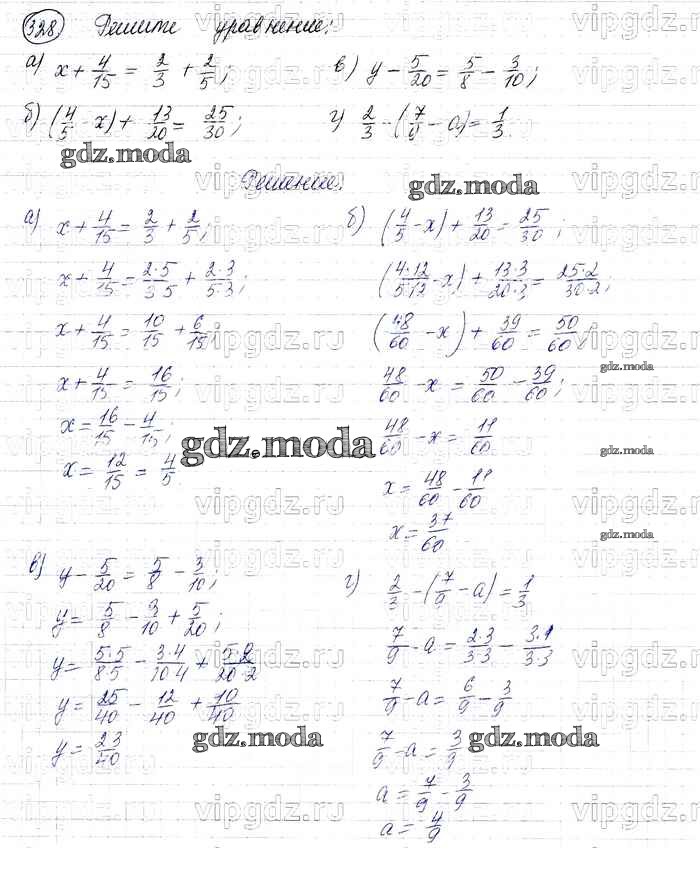 328 Решите уравнение:
а) x + 4/15 = 2/3 + 2/5; в) y - 5/20 = 5/8 - 3/10;
б) (4/5 - x) + 13/20 = 25/30; г) 2/3 - (7/9 - a) = 1/3.
gdz.moda
Решение:
gdz.moda
а) x + 4/15 = 2/3 + 2/5;
x + 4/15 = 2·5/3·5 + 2·3/5·3;
x + 4/15 = 10/15 + 6/15;
x + 4/15 = 16/15;
x = 16/15 - 4/15;
x = 12/15 = 4/5
б) (4/5 - x) + 13/20 = 25/30;
(4·12/5·12 - x) + 13·3/20·3 = 25·2/30·2;
(48/60 - x) + 39/60 = 50/60
48/60 - x = 50/60 - 39/60;
48/60 - x = 11/60
x = 48/60 - 11/60
x = 37/60
gdz.moda
gdz.moda
gdz.moda
gdz.moda
в) y - 5/20 = 5/8 - 3/10;
y = 5/8 - 3/10 + 5/20;
y = 5·5/8·5 - 3·4/10·4 + 5·2/20·2
y = 25/40 - 12/40 + 10/40
y = 23/40
gdz.moda
г) 2/3 - (7/9 - a) = 1/3
7/9 - a = 2·3/3·3 - 3·1/3·3
7/9 - a = 6/9 - 3/9
7/9 - a = 3/9
a = 7/9 - 3/9
a = 4/9
gdz.moda
gdz.moda
vipgdz.ru